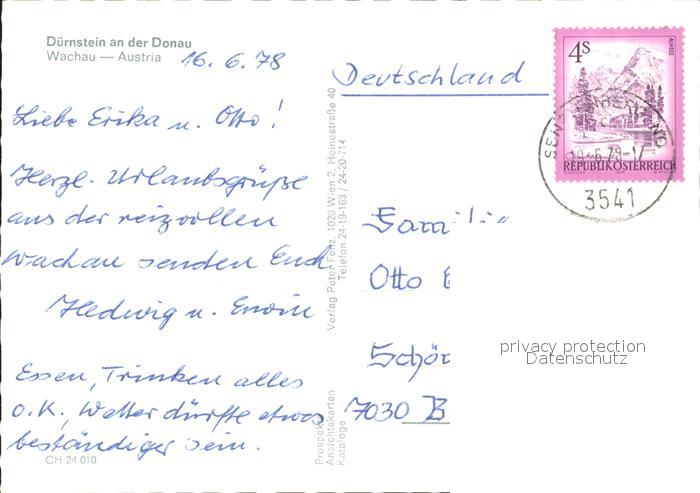 Dürnstein an der Donau
Wachau — Austria
16. 6. 78
Liebe Erika u. Otto!
Herzl. Urlaubsgrüße
aus der reizvollen
Wachau senden Euch
Hedwig u. Erwin
Essen, Trinken alles
o.K., Wetter dürfte etwas
beständiger sein.
CH 24 010
Verlag Peter Fenz, 1020 Wien 2, Heinestraße 40
Telefon 24-19-163 / 24-20-714
Prospekte
Ansichtskarten
Kataloge
Deutschland
4S
ALMSEE
REPUBLIK ÖSTERREICH
3541
Otto
7030 B
privacy protection
Datenschutz